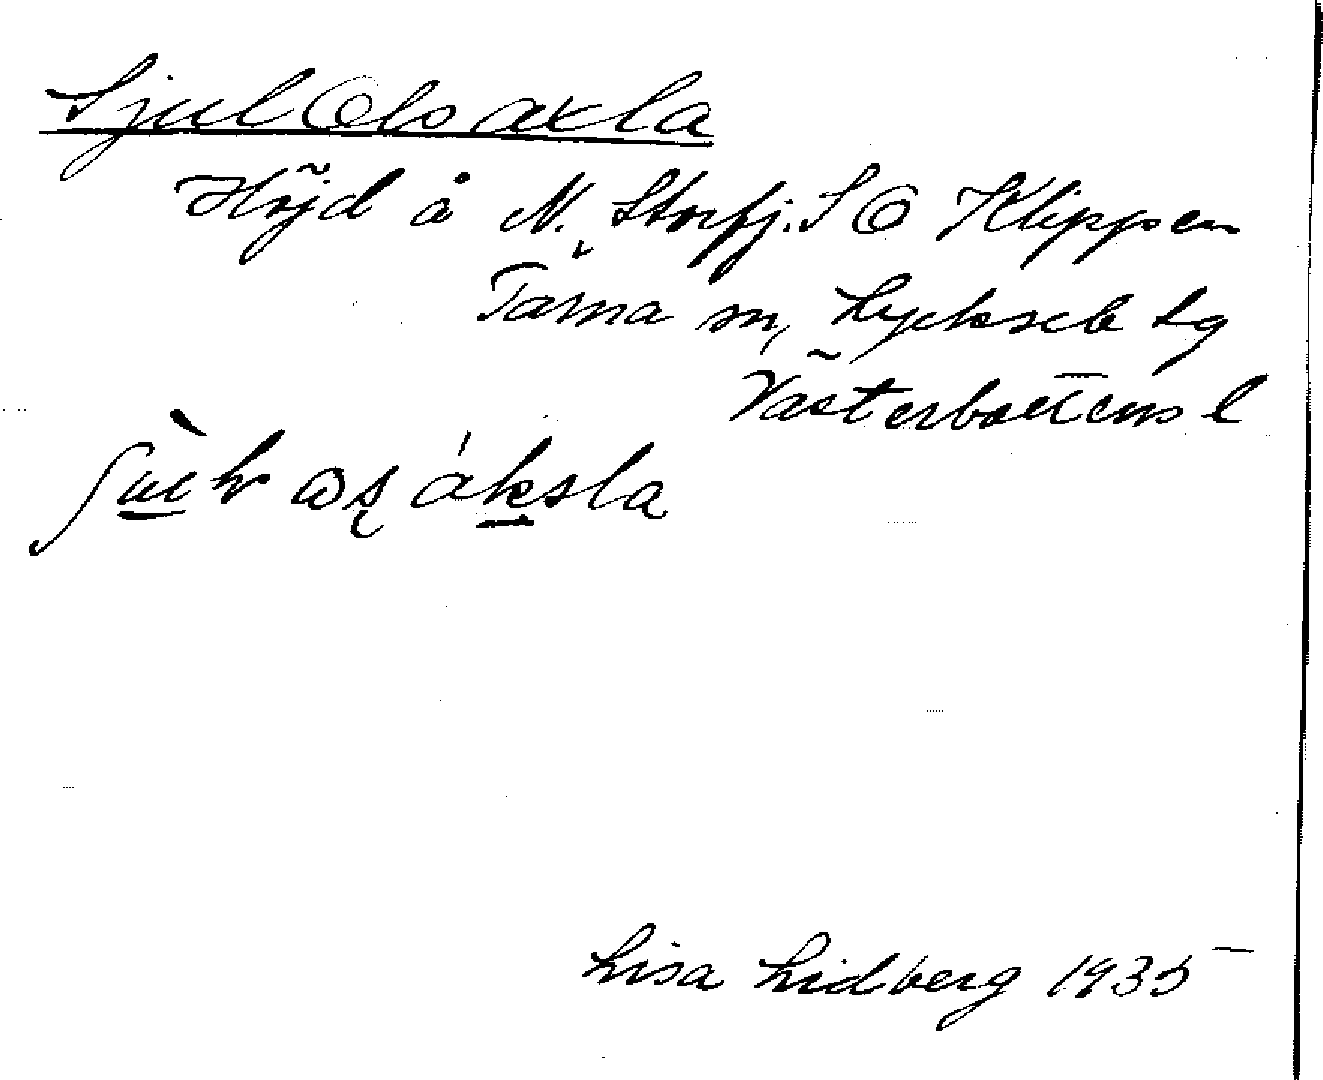 Sjul Ols axla
Höjd å N. Storfj. S O Klippen
Tärna sn, Lycksele lg
Västerbottens l
aksla
Lisa Lidberg 1935